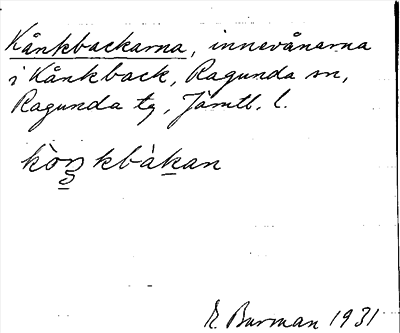 Kånkbackarna, innevånarna
i Kånkback, Ragunda sn,
Ragunda tg, Jämtl. l.
kòŋkbàkan
E. Burman 1931